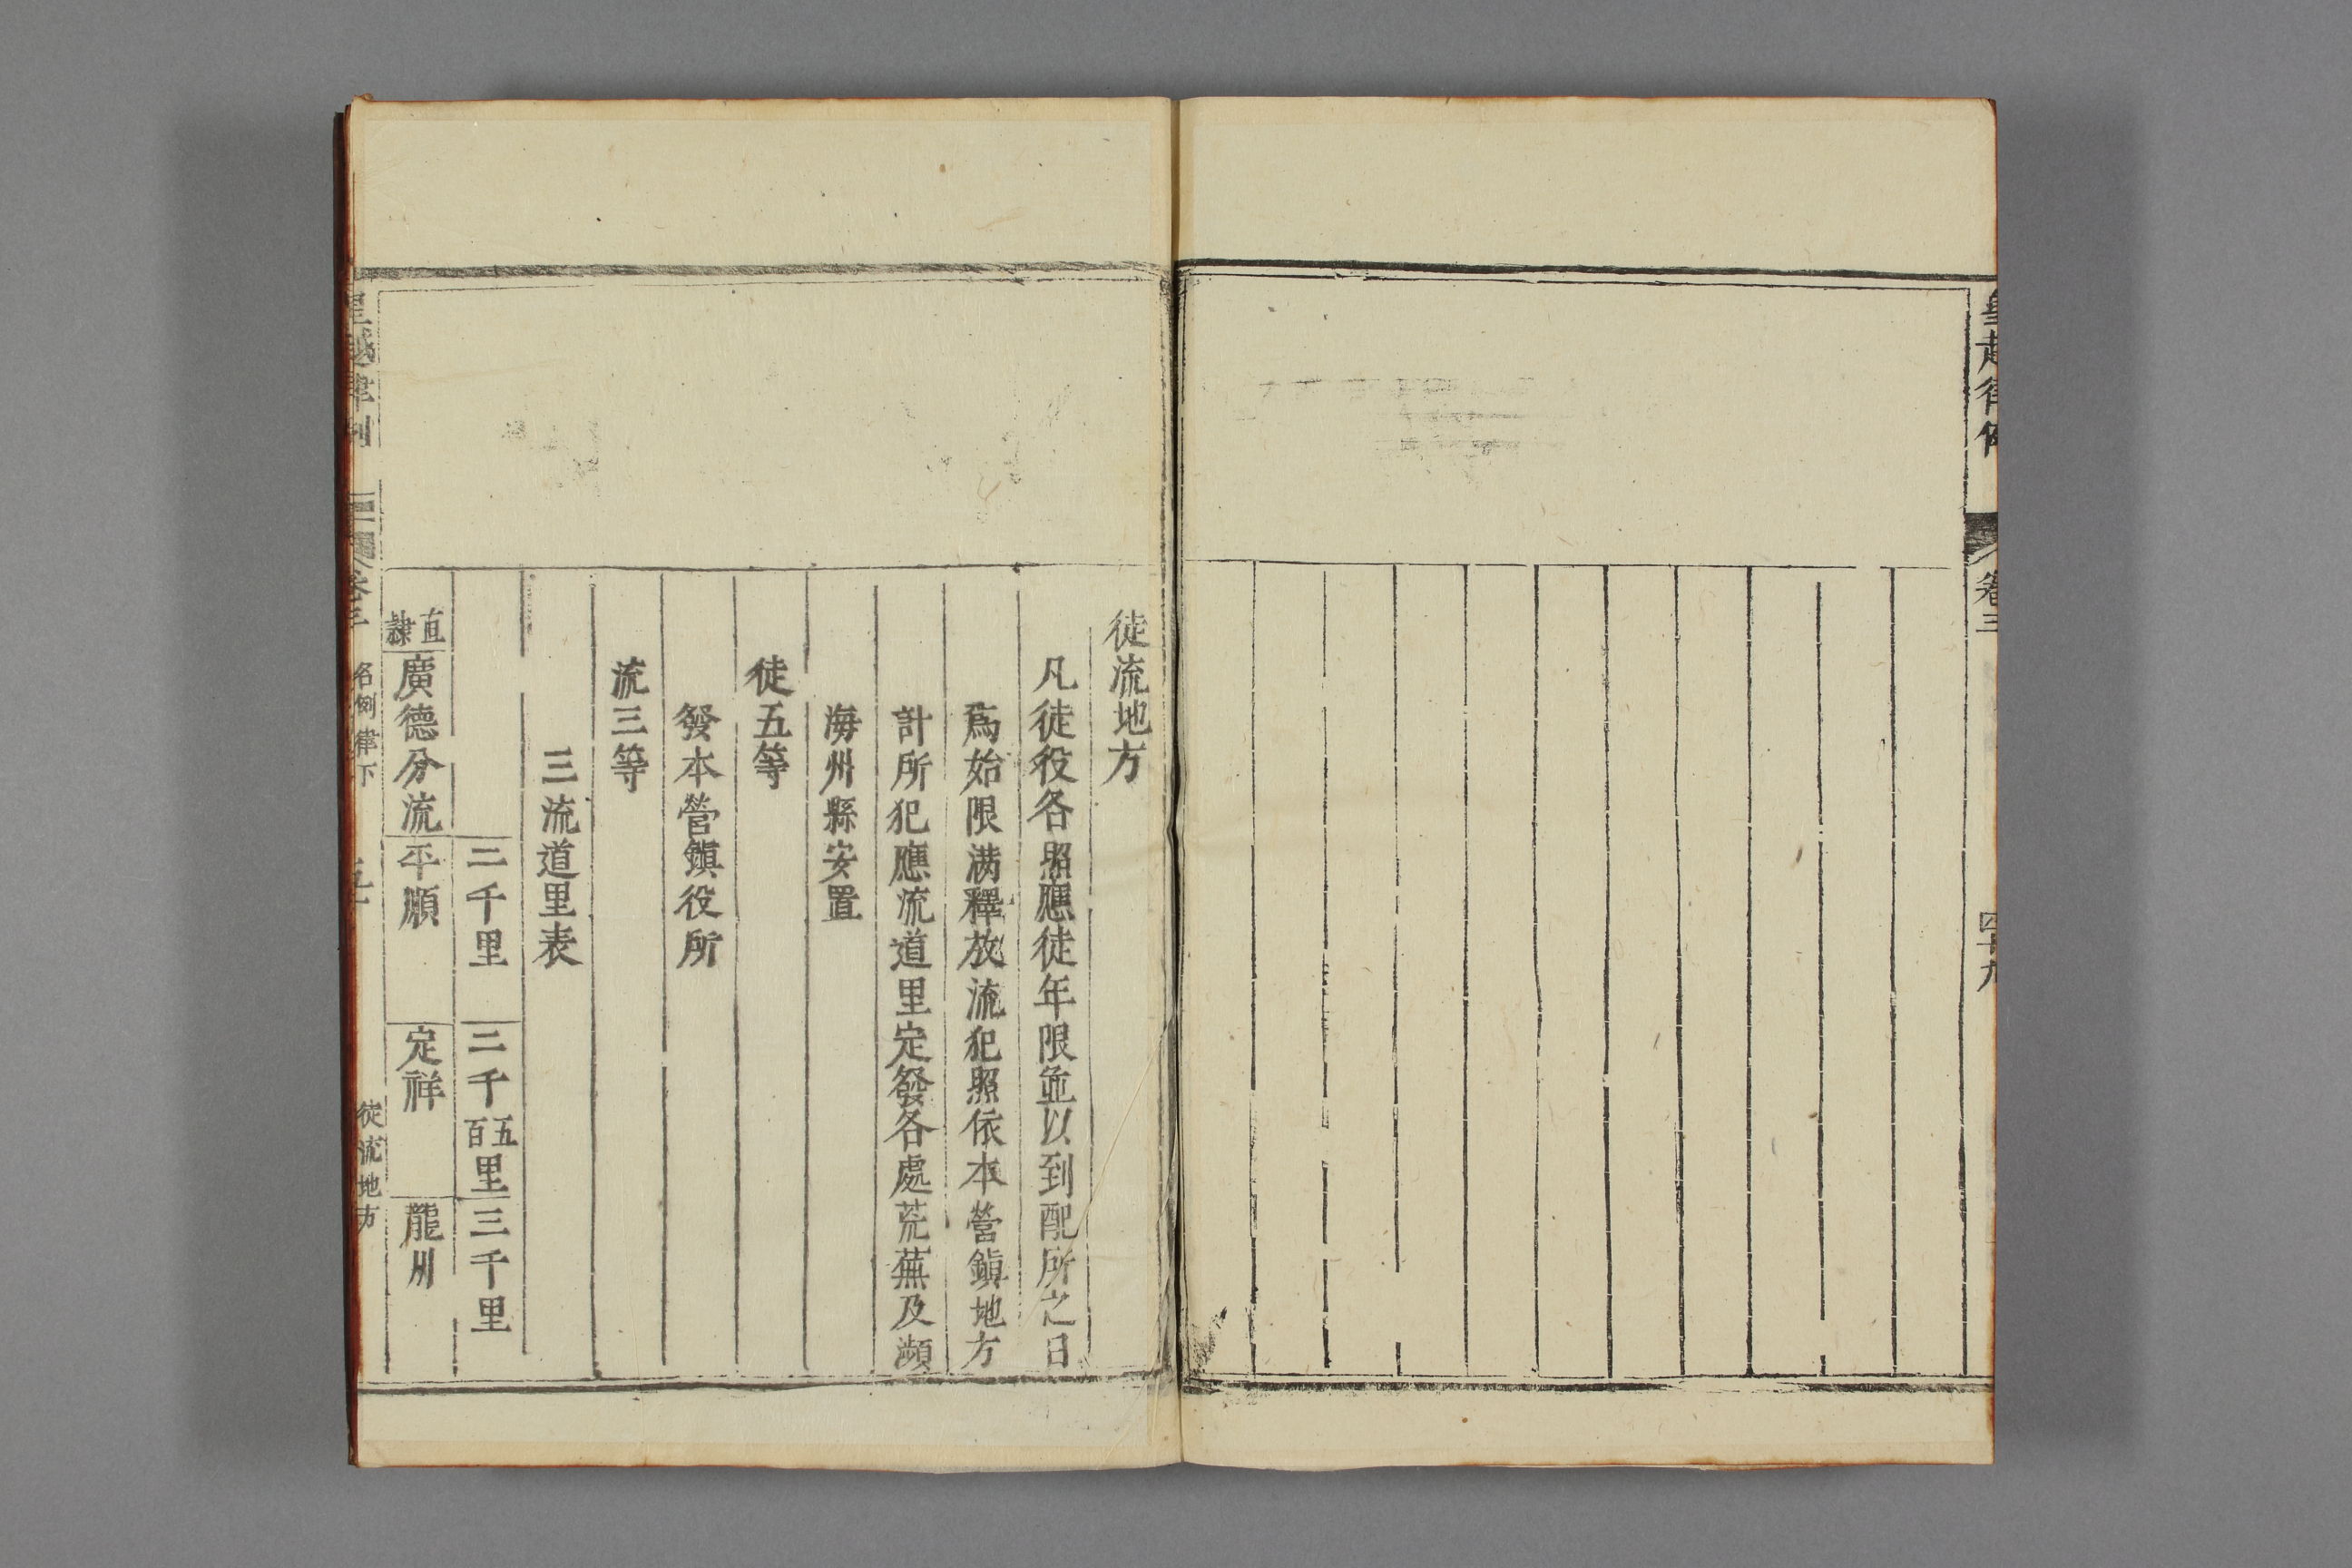 皇越律例
卷三
四十九
徒流地方
凡徒役各照應徒年限並以到配所之日
爲始限满釋放流犯照依本營鎭地方
計所犯應流道里定發各處荒蕪及瀕
海州縣安置
徒五等
發本營鎭役所
流三等
三流道里表
二千里
二千五百里
三千里
直隸廣德分流
平順
定祥
龍川
皇越律例
卷三
名例律下
五十
徒流地方